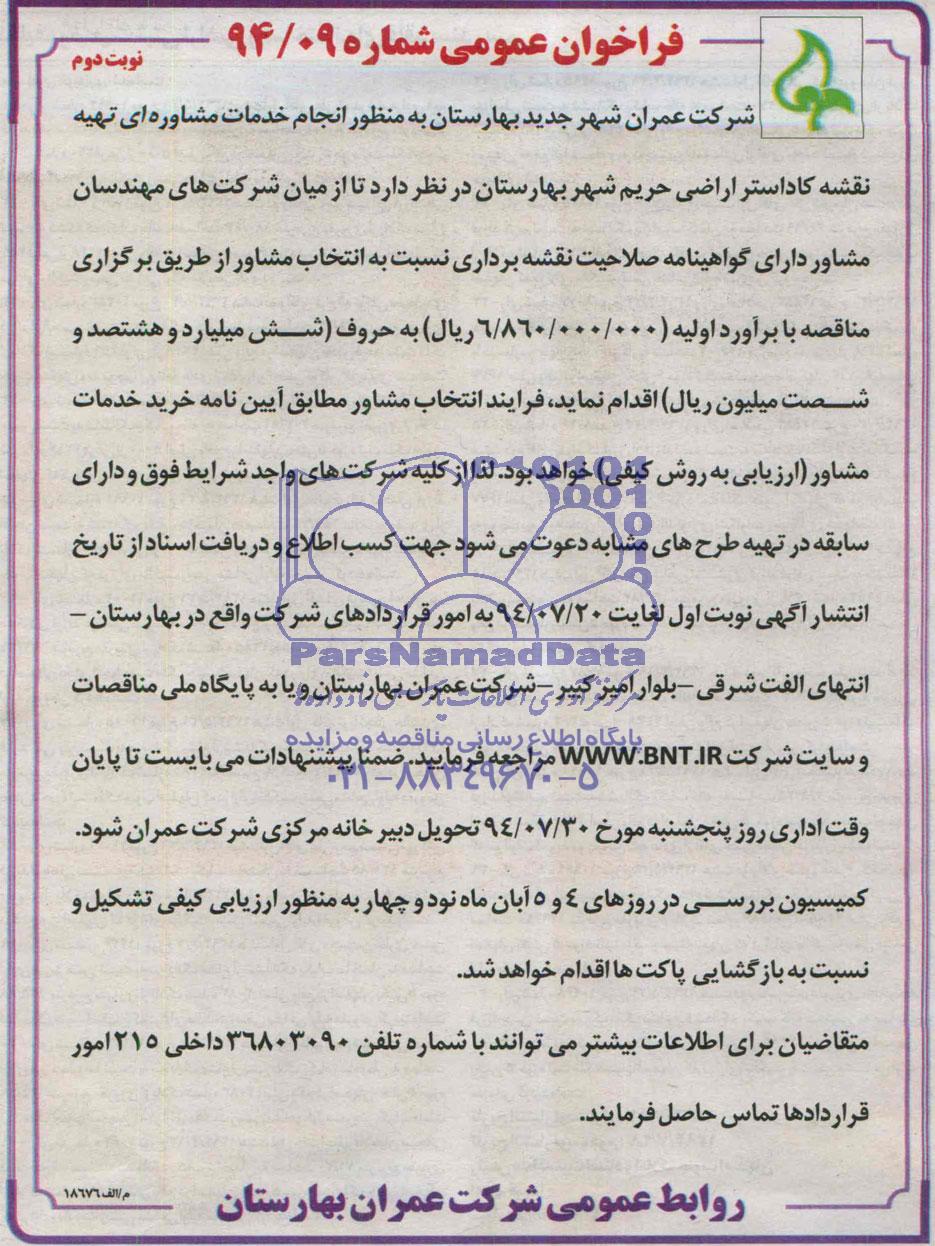 فراخوان عمومی شماره ۹۴/۰۹
نوبت دوم
شرکت عمران شهر جدید بهارستان به منظور انجام خدمات مشاوره ای تهیه
نقشه کاداستر اراضی حریم شهر بهارستان در نظر دارد تا از میان شرکت های مهندسان
مشاور دارای گواهینامه صلاحیت نقشه برداری نسبت به انتخاب مشاور از طریق برگزاری
مناقصه با برآورد اولیه (۶/۸۶۰/۰۰۰/۰۰۰ ریال) به حروف (شش میلیارد و هشتصد و
شصت میلیون ریال) اقدام نماید، فرایند انتخاب مشاور مطابق آیین نامه خرید خدمات
مشاور (ارزیابی به روش کیفی) خواهد بود. لذا از کلیه شرکت های واجد شرایط فوق و دارای
سابقه در تهیه طرح های مشابه دعوت می شود جهت کسب اطلاع و دریافت اسناد از تاریخ
انتشار آگهی نوبت اول لغایت ۹۴/۰۷/۲۰ به امور قراردادهای شرکت واقع در بهارستان –
ParsNamadData
انتهای الفت شرقی – بلوار امیر کبیر – شرکت عمران بهارستان و یا به پایگاه ملی مناقصات
پایگاه اطلاع رسانی مناقصه و مزایده
و سایت شرکت WWW.BNT.IR مراجعه فرمایید. ضمنا پیشنهادات می بایست تا پایان
۰۲۱-۸۸۳۴۹۶۷۰-۵
وقت اداری روز پنجشنبه مورخ ۹۴/۰۷/۳۰ تحویل دبیر خانه مرکزی شرکت عمران شود.
کمیسیون بررسی در روزهای ۴ و ۵ آبان ماه نود و چهار به منظور ارزیابی کیفی تشکیل و
نسبت به بازگشایی پاکت ها اقدام خواهد شد.
متقاضیان برای اطلاعات بیشتر می توانند با شماره تلفن ۳۶۸۰۳۰۹۰ داخلی ۲۱۵ امور
قراردادها تماس حاصل فرمایند.
روابط عمومی شرکت عمران بهارستان
م/الف ۱۸۶۷۶